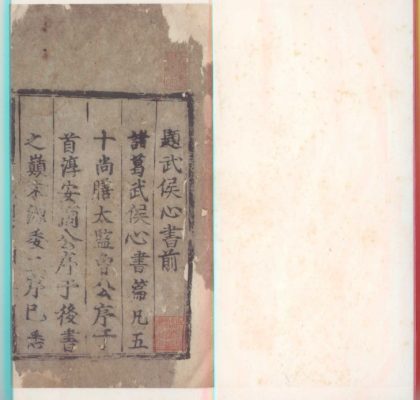 題武侯心書前
諸葛武侯心書篇凡五
十尚膳太監曾公序于
首淳安商公序于後書
之巔末源委二序已悉